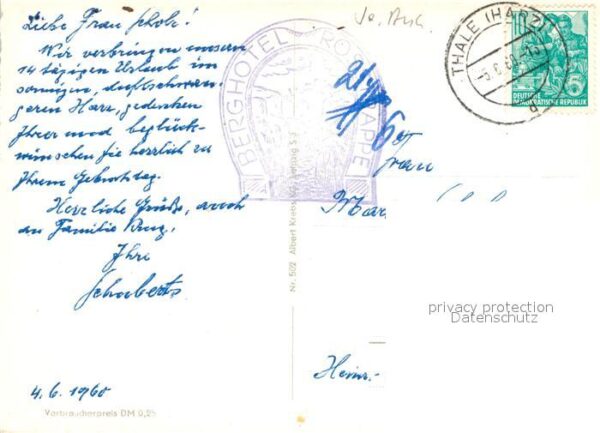 Liebe Frau
Wir verbringen unseren
14 tägigen Urlaub im
sonnigen, duftschwan-
geren Harz, gedenken
Ihrer und beglück-
wünschen Sie herzlich zu
Ihrem Geburtstag.
Herzliche Grüße, auch
an Familie
Ihre
Schuberts
4.6.1960
Verbraucherpreis DM 0,25
BERGHOTEL ROSSTRAPPE
Nr. 502 Albert Kress
THALE (HARZ)
5
DEUTSCHE
DEMOKRATISCHE REPUBLIK
Frau
Mar
privacy protection
Datenschutz
Heinr.-